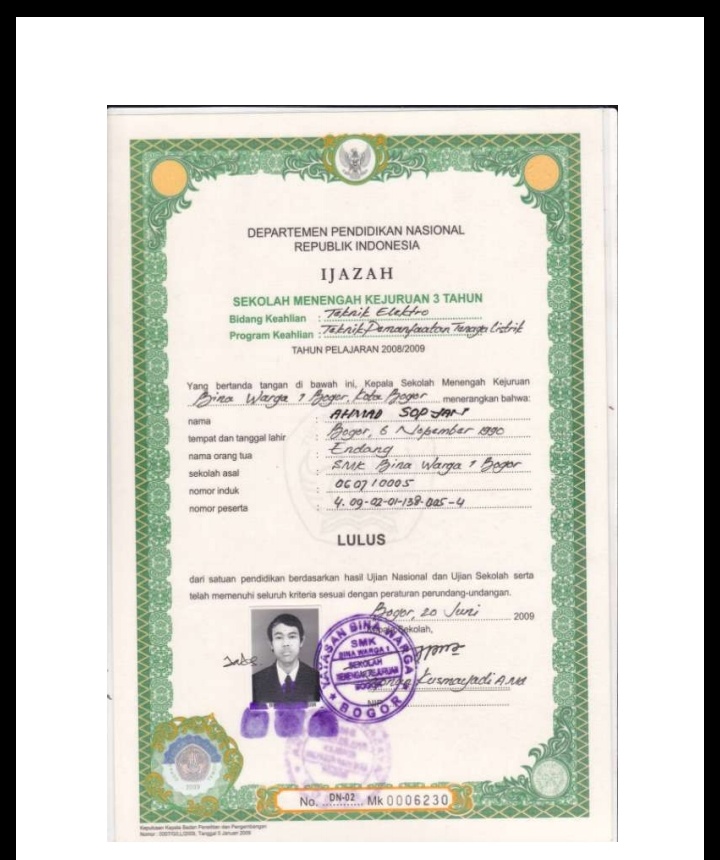 DEPARTEMEN PENDIDIKAN NASIONAL
REPUBLIK INDONESIA
IJAZAH
SEKOLAH MENENGAH KEJURUAN 3 TAHUN
Bidang Keahlian : Teknik Elektro
Program Keahlian : Teknik Pemanfaatan Tenaga Listrik
TAHUN PELAJARAN 2008/2009
Yang bertanda tangan di bawah ini, Kepala Sekolah Menengah Kejuruan
Bina Warga 1 Bogor, Kota Bogor menerangkan bahwa:
nama : AHMAD SOPJAN
tempat dan tanggal lahir : Bogor, 6 Nopember 1990
nama orang tua : Endang
sekolah asal : SMK Bina Warga 1 Bogor
nomor induk : 060710005
nomor peserta : 4.09-02-01-138-005-4
LULUS
dari satuan pendidikan berdasarkan hasil Ujian Nasional dan Ujian Sekolah serta
telah memenuhi seluruh kriteria sesuai dengan peraturan perundang-undangan.
Bogor, 20 Juni 2009
Sekolah,
YAYASAN BINA WARGA
SMK
BINA WARGA 1
SEKOLAH
MENENGAH KEJURUAN
BOGOR
BOGOR
Kusmayadi
NIP
No. DN-02 Mk 0006230
Keputusan Kepala Badan Penelitian dan Pengembangan